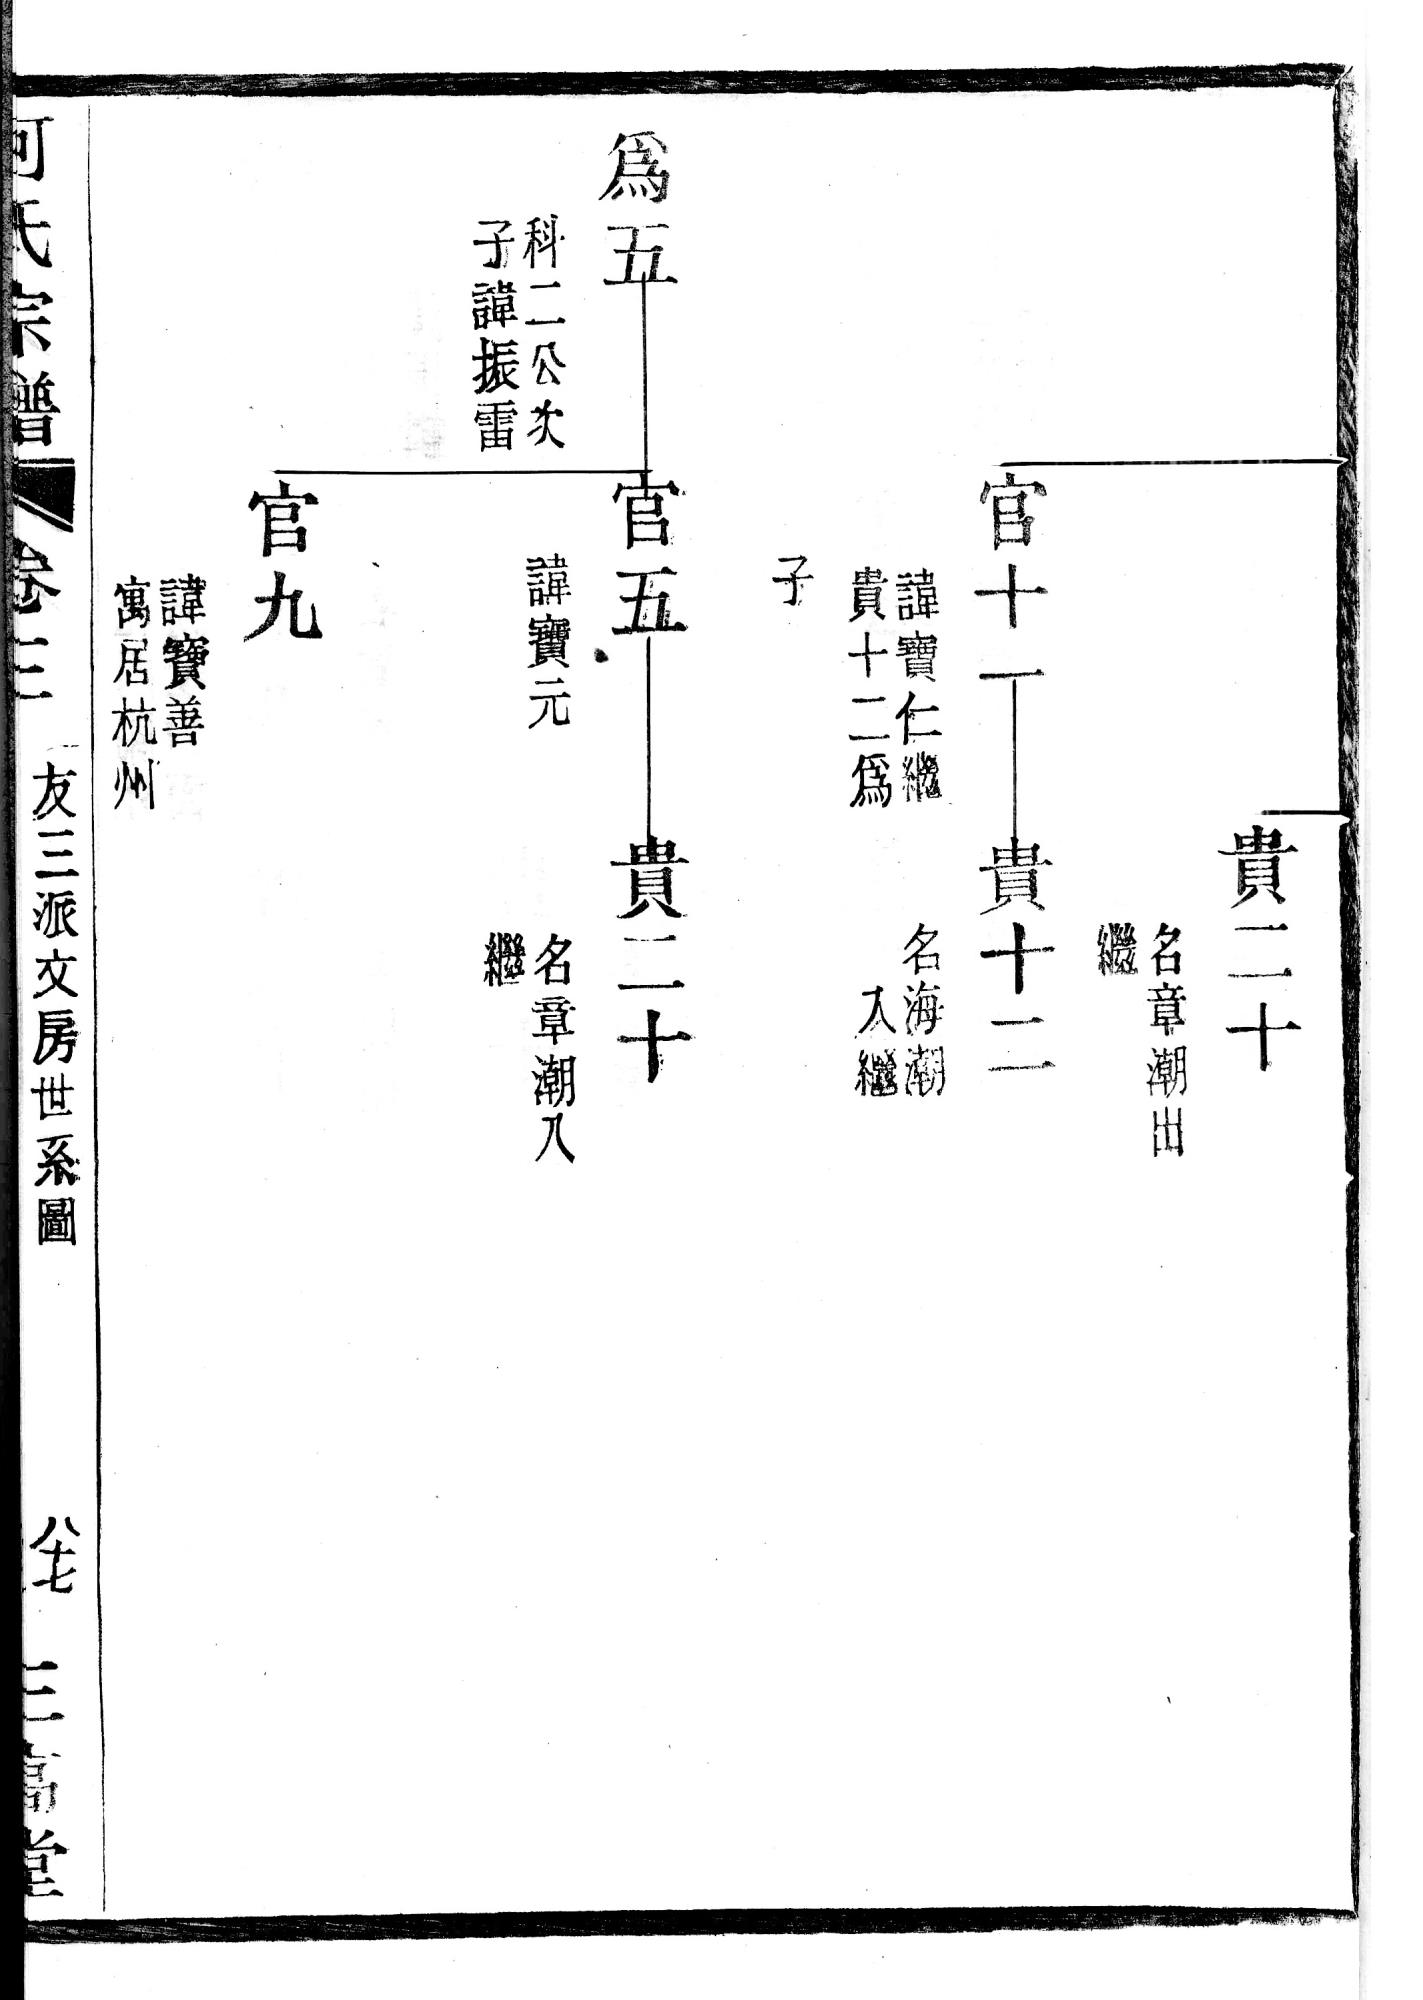 貴二十
名章潮出
繼
官十一
諱寶仁繼
貴十二為
子
貴十二
名海潮
入繼
為五
科二公次
子諱振雷
官五
諱寶元
貴二十
名章潮入
繼
官九
諱寶善
寓居杭州
何氏宗譜
卷三
友三派文房世系圖
八十七
三高堂